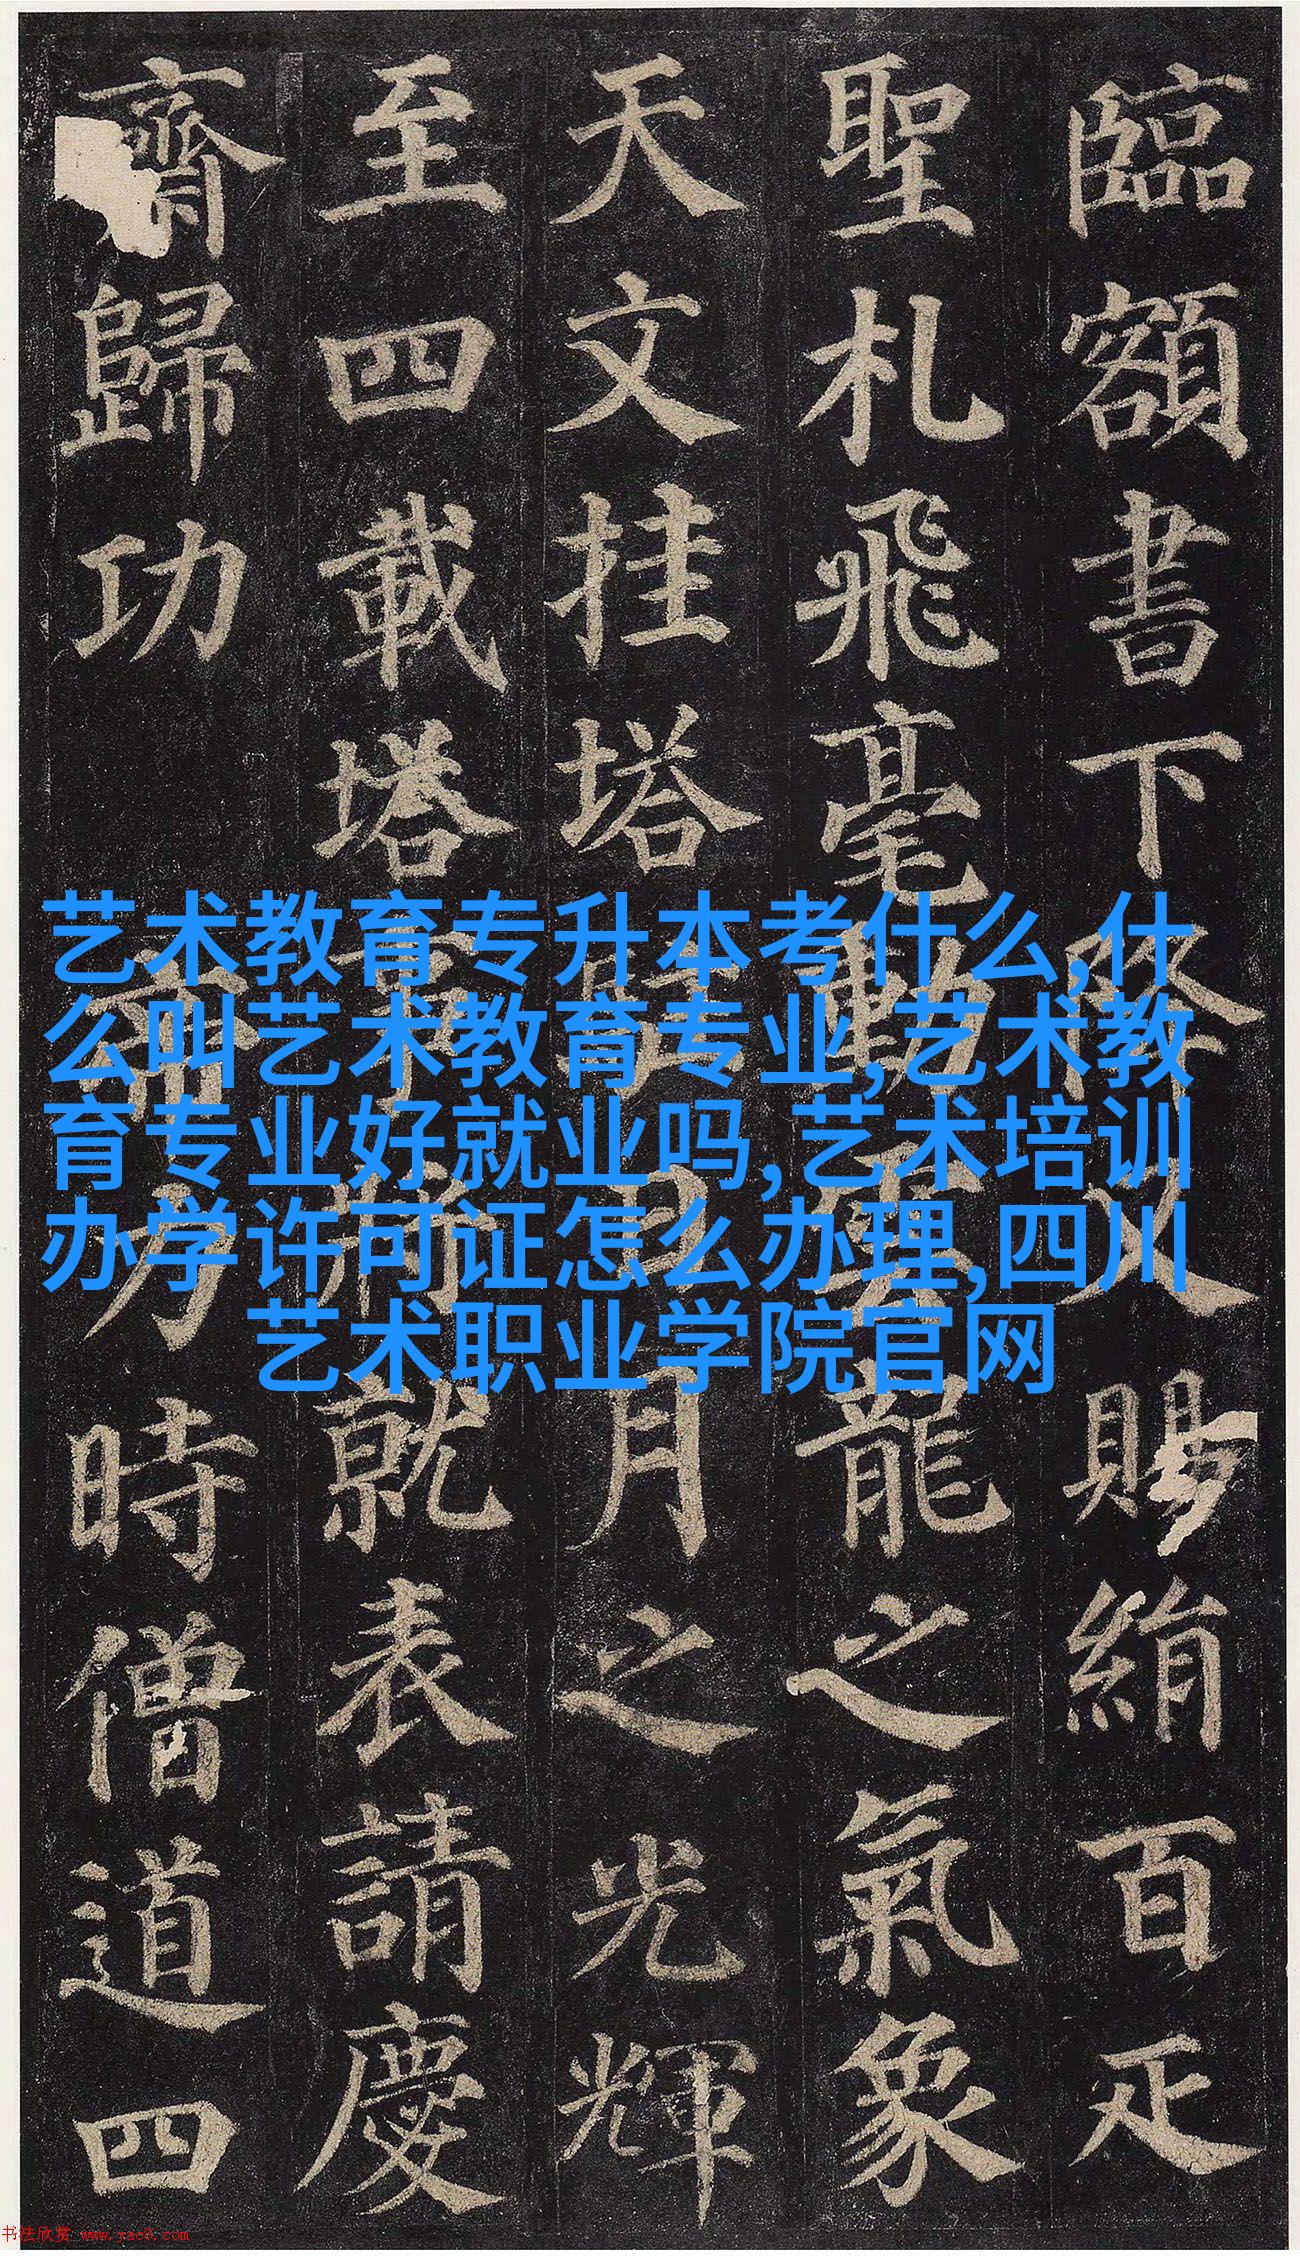 臨額書下降又賜絹百疋
聖札飛毫動雲龍之氣象
天文挂塔駐日月之光輝
至四載塔事將就表請慶
齋歸功帝力時僧道四
艺术教育专升本考什么,什
么叫艺术教育专业,艺术教
育专业好就业吗,艺术培训
办学许可证怎么办理,四川
艺术职业学院官网
书法欣赏 www.yac8.com